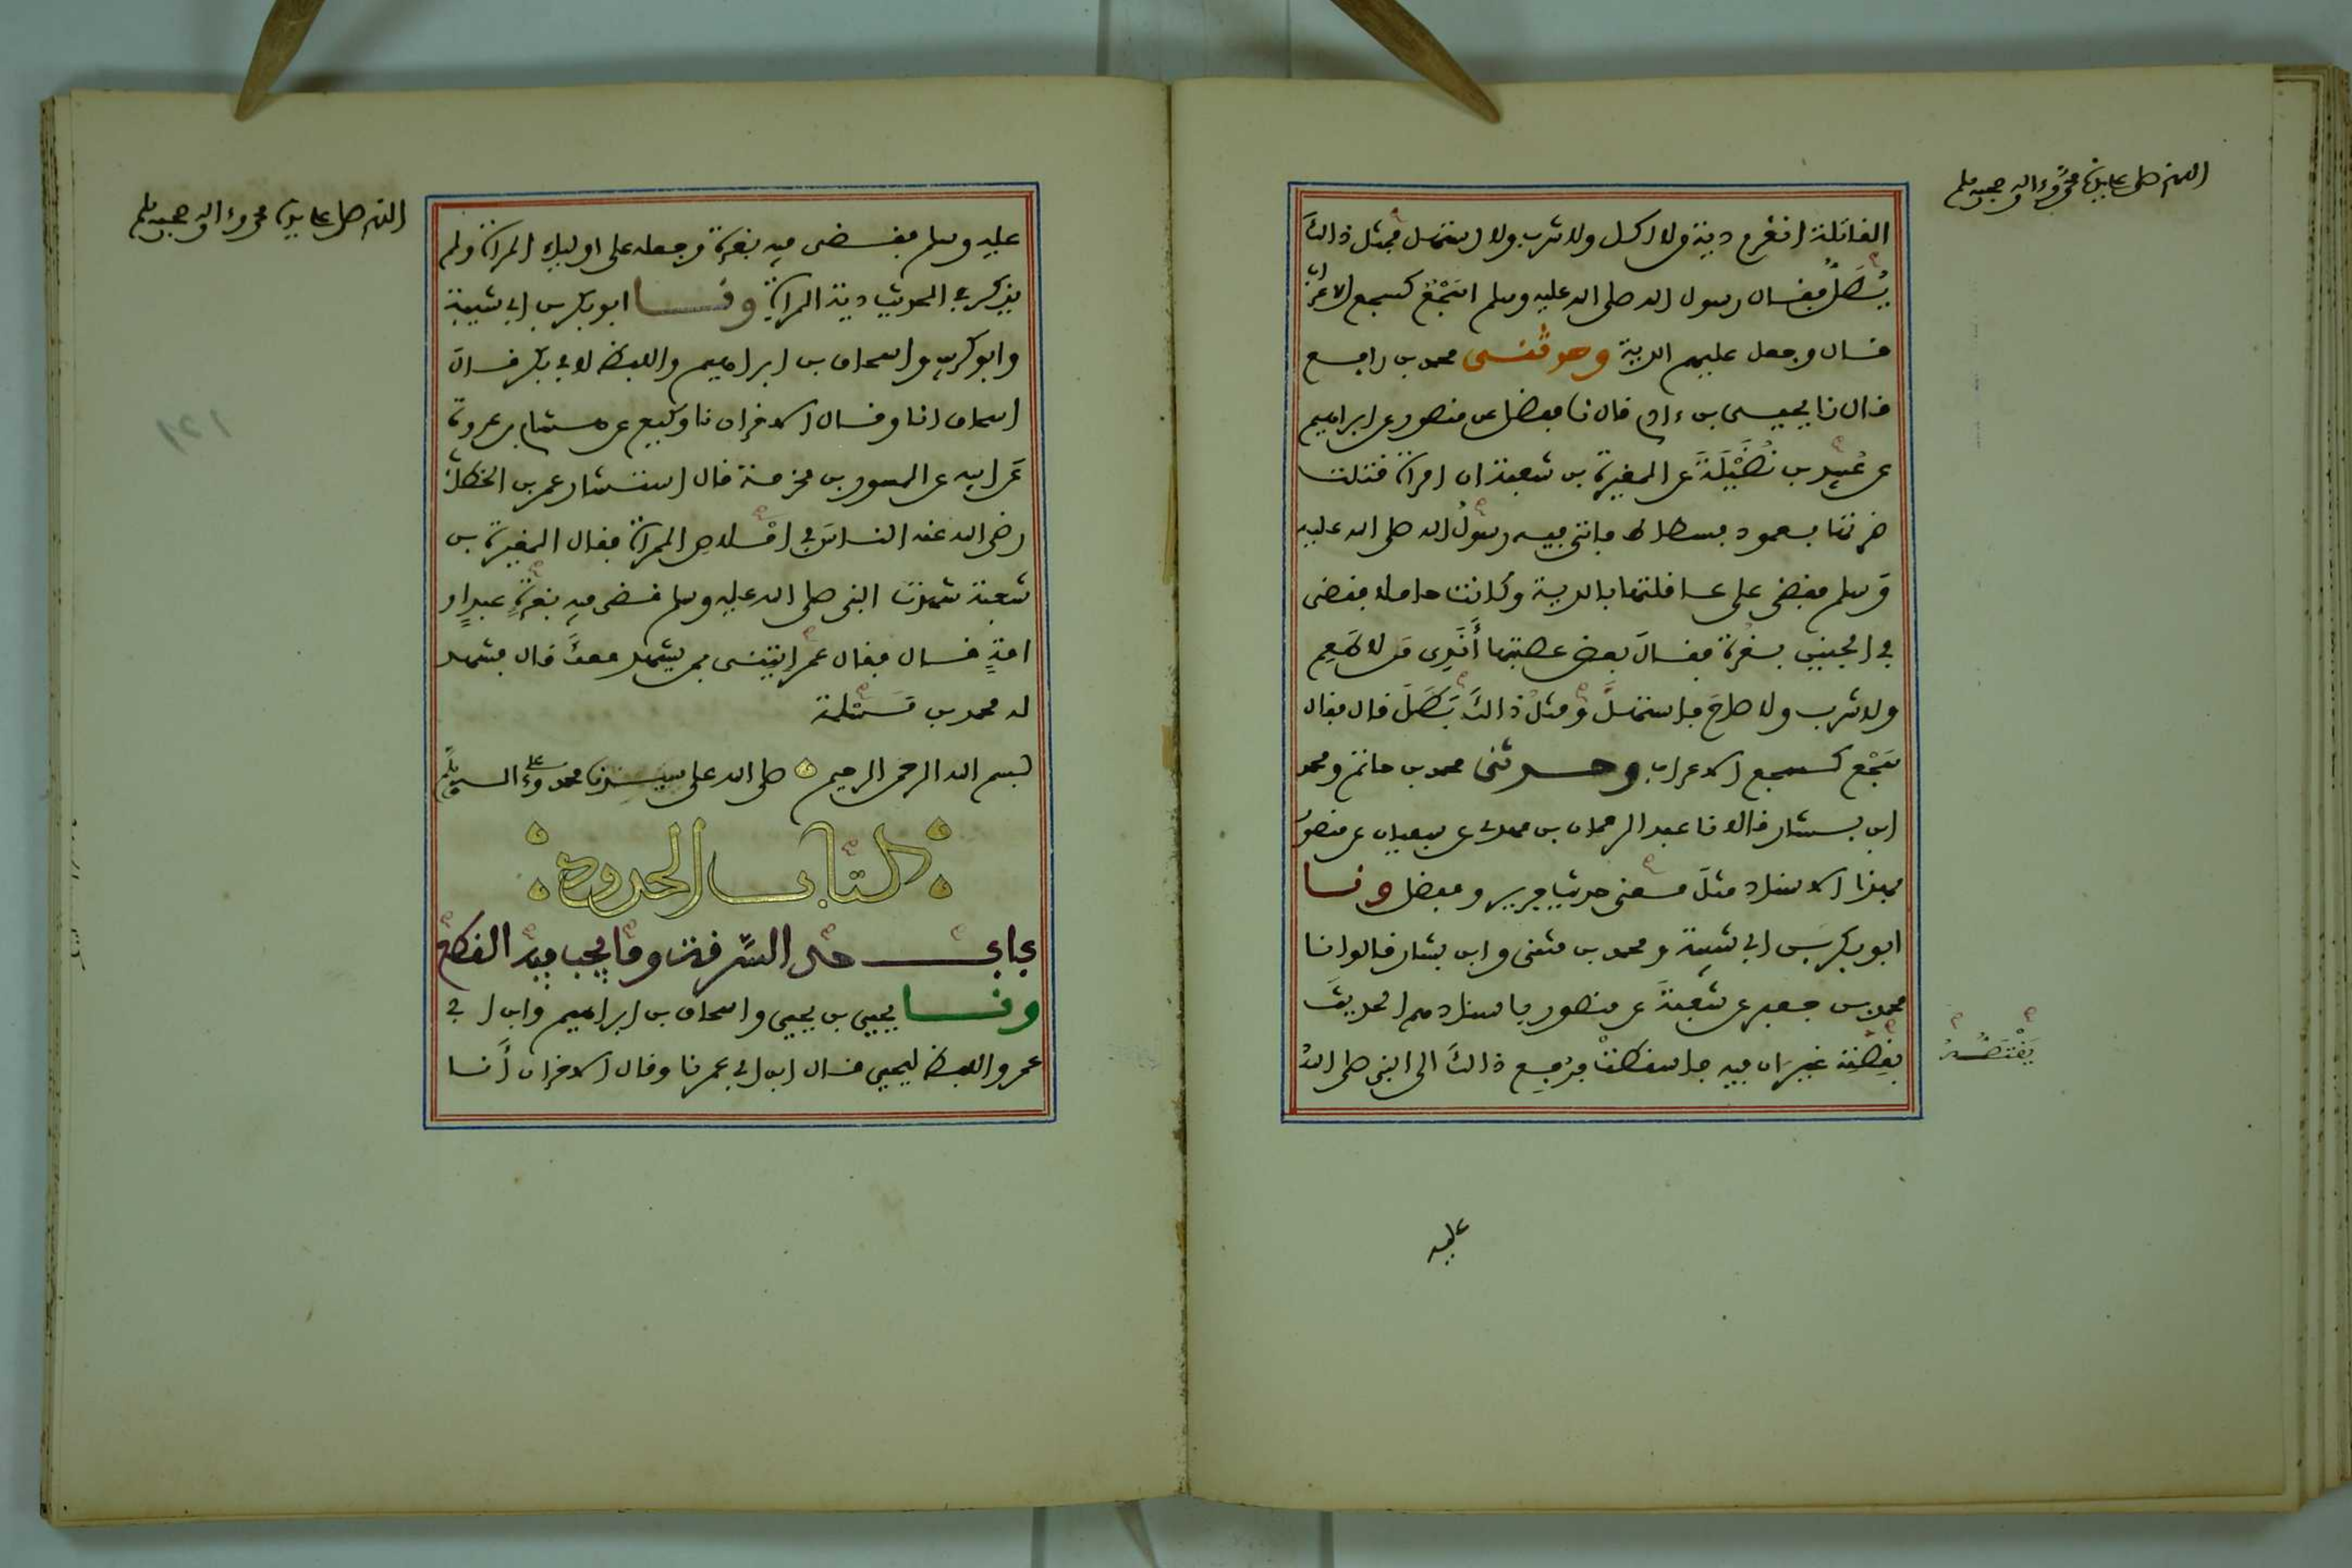 اللهم صل على سيدنا محمد وءاله وصحبه وسلم
القاتلة انغرم دية من لا اكل ولا شرب ولا استهل فمثل ذالك
يُطَلُّ فقال رسول الله صلى الله عليه وسلم اسَجْعٌ كسجع الاعراب
قال وجعل عليهم الدية وحدثنى محمد بن رافع
قال نا يحيى بن ءادم قال نا مفضل عن منصور عن ابراهيم
عن عُبيد بن نُضَيْلَةَ عن المغيرة بن شعبة ان امراة قتلت
ضرتها بعمود فسطاط فاتى فيه رسولُ الله صلى الله عليه
وسلم فقضى على عاقلتها بالدية وكانت حاملا فقضى
في الجنين بغرة فقال بعض عصبتها أَنَدِى من لا طَعِم
ولا شرب ولا صاحَ فاستهلَّ ومثلُ ذالكَ يُطَلّ قال فقال
سَجْع كسجع الاعراب وحدثنى محمد بن حاتم ومحمد
ابن بشار قالا نا عبد الرحمان بن مهدى عن سفيان عن منصور
بهذا الاسناد مثلَ معنى حديث جرير ومفضل ونا
ابو بكر بن ابي شيبة ومحمد بن مثنى وابن بشار قالوا نا
محمد بن جعفر عن شعبةَ عن منصور باسنادهم الحديثَ
بقصته غير ان فيه فاسقطتْ فرُفِع ذالكَ الى النبي صلى الله
عليه
اللهم صل على سيدنا محمد وءاله وصحبه وسلم
عليه وسلم فقضى فيه بغرة وجعله على اولياء المراة ولم
يذكر في الحديث دية المراة ونا ابو بكر بن ابي شيبة
وابو كريب واسحاق بن ابراهيم واللفظ لابي بكر قال
اسحاق انا وقال الاخران نا وكيع عن هشام بن عروة
عن ابيه عن المسور بن مخرمة قال استشار عمر بن الخطاب
رضي الله عنه الناسَ في امْلاص المراة فقال المغيرة بن
شعبة شهدت النبي صلى الله عليه وسلم قضى فيه بغرةٍ عبدٍ او
امةٍ قال فقال عمر ايتنى بمن يشهد معكَ قال فشهد
له محمد بن مَسْلمة
بسم الله الرحمن الرحيم صلى الله على سيدنا محمد وعلى ءاله وسلم
كتاب الحدود
باب حد السَّرقة وما يجب فيه القطع
ونا يحيى بن يحيى واسحاق بن ابراهيم وابن ابي
عمر واللفظ ليحيى قال ابن ابي عمر نا وقال الاخران أَنا